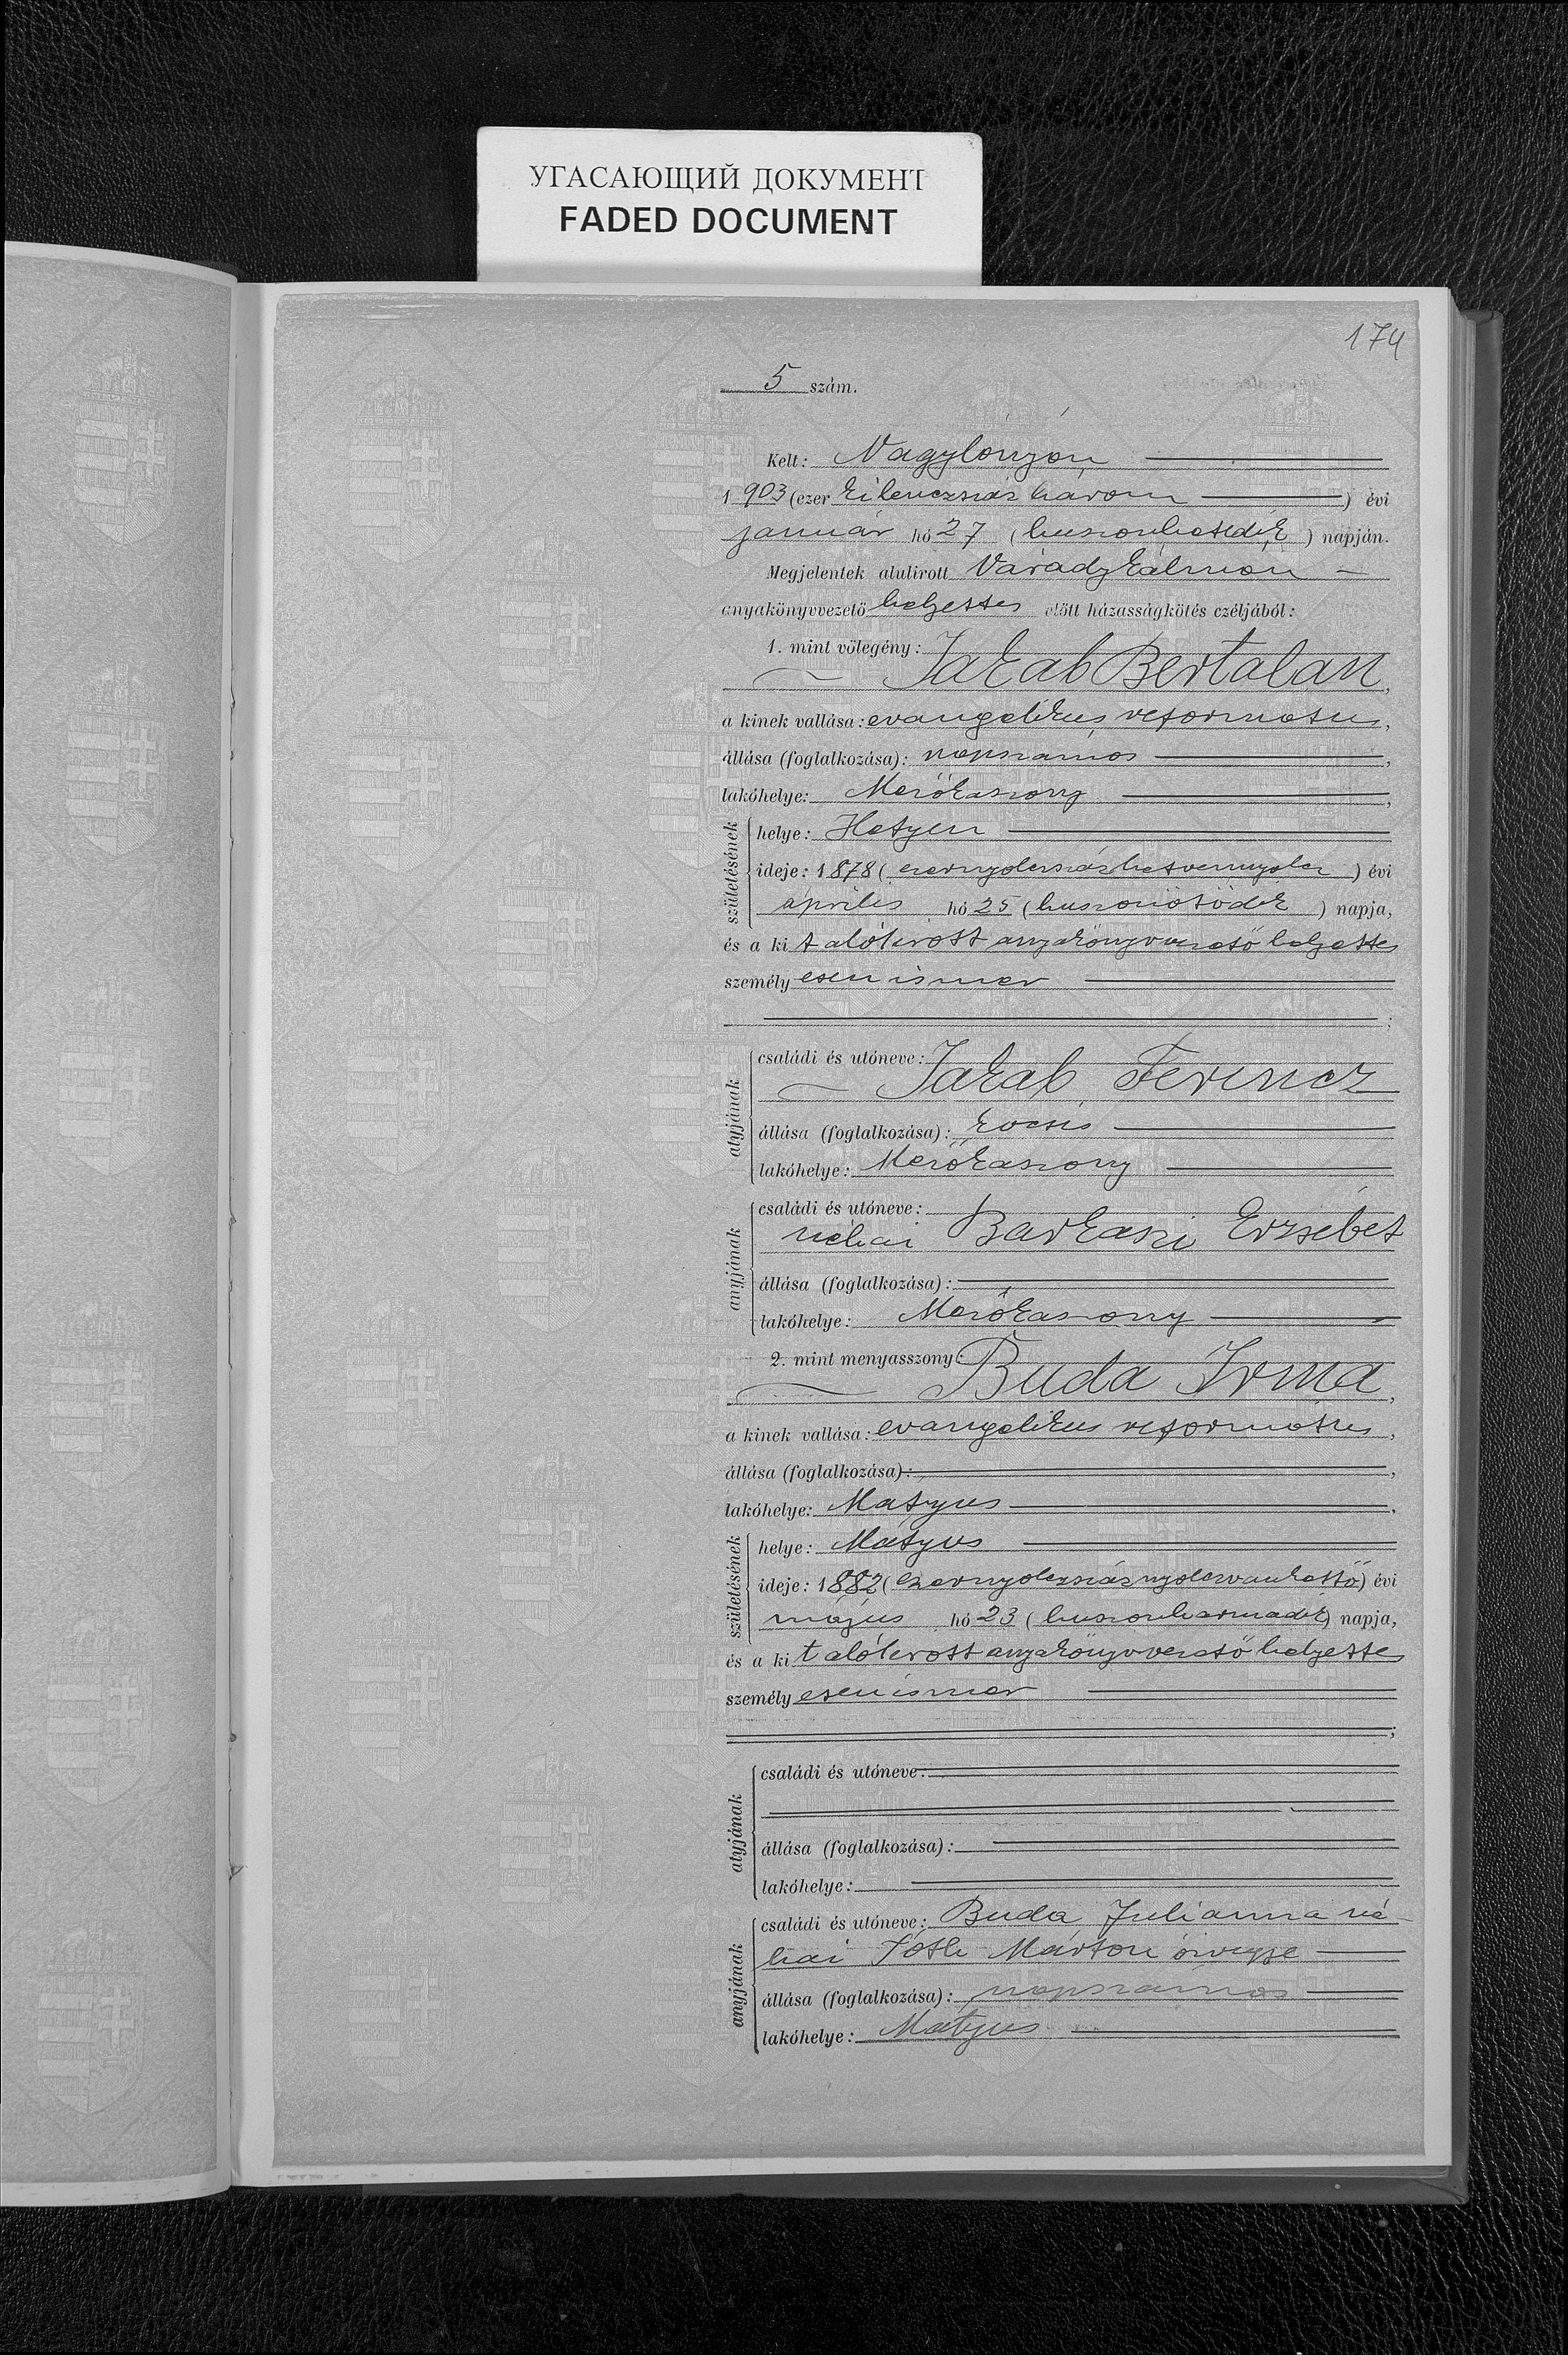 УГАСАЮЩИЙ ДОКУМЕНТ
FADED DOCUMENT
174
5 szám.
Kelt: Nagylónyán
1903 (ezer kilenczszáz három) évi
január hó 27 (huszonhetedik) napján.
Megjelentek alulirott Várady Kálmán
anyakönyvvezető helyettes előtt házasságkötés czéljából:
1. mint vőlegény:
Jakab Bertalan,
a kinek vallása: evangelikus reformatus,
állása (foglalkozása): napszámos,
lakóhelye: Mezőkaszony,
születésének
helye: Hetyen
ideje: 1878 (ezernyolczszázhetvennyolcz) évi
április hó 25 (huszonötödik) napja,
és a kit alólirott anyakönyvvezető helyettes
személyesen ismer
;
atyjának
családi és utóneve:
Jakab Ferencz
állása (foglalkozása): kocsis
lakóhelye: Mezőkaszony
anyjának
családi és utóneve:
néhai Barkaszi Erzsébet
állása (foglalkozása):
lakóhelye: Mezőkaszony
2. mint menyasszony:
Buda Irma,
a kinek vallása: evangelikus református,
állása (foglalkozása):,
lakóhelye: Matyus,
születésének
helye: Mátyus
ideje: 1882 (ezernyolczszáznyolczvankettő) évi
május hó 23 (huszonharmadik) napja,
és a kit alólirott anyakönyvvezető helyettes
személyesen ismer
;
atyjának
családi és utóneve:
állása (foglalkozása):
lakóhelye:
anyjának
családi és utóneve: Buda Julianna né-
hai Tóth Márton özvegye
állása (foglalkozása): napszámos
lakóhelye: Mátyus